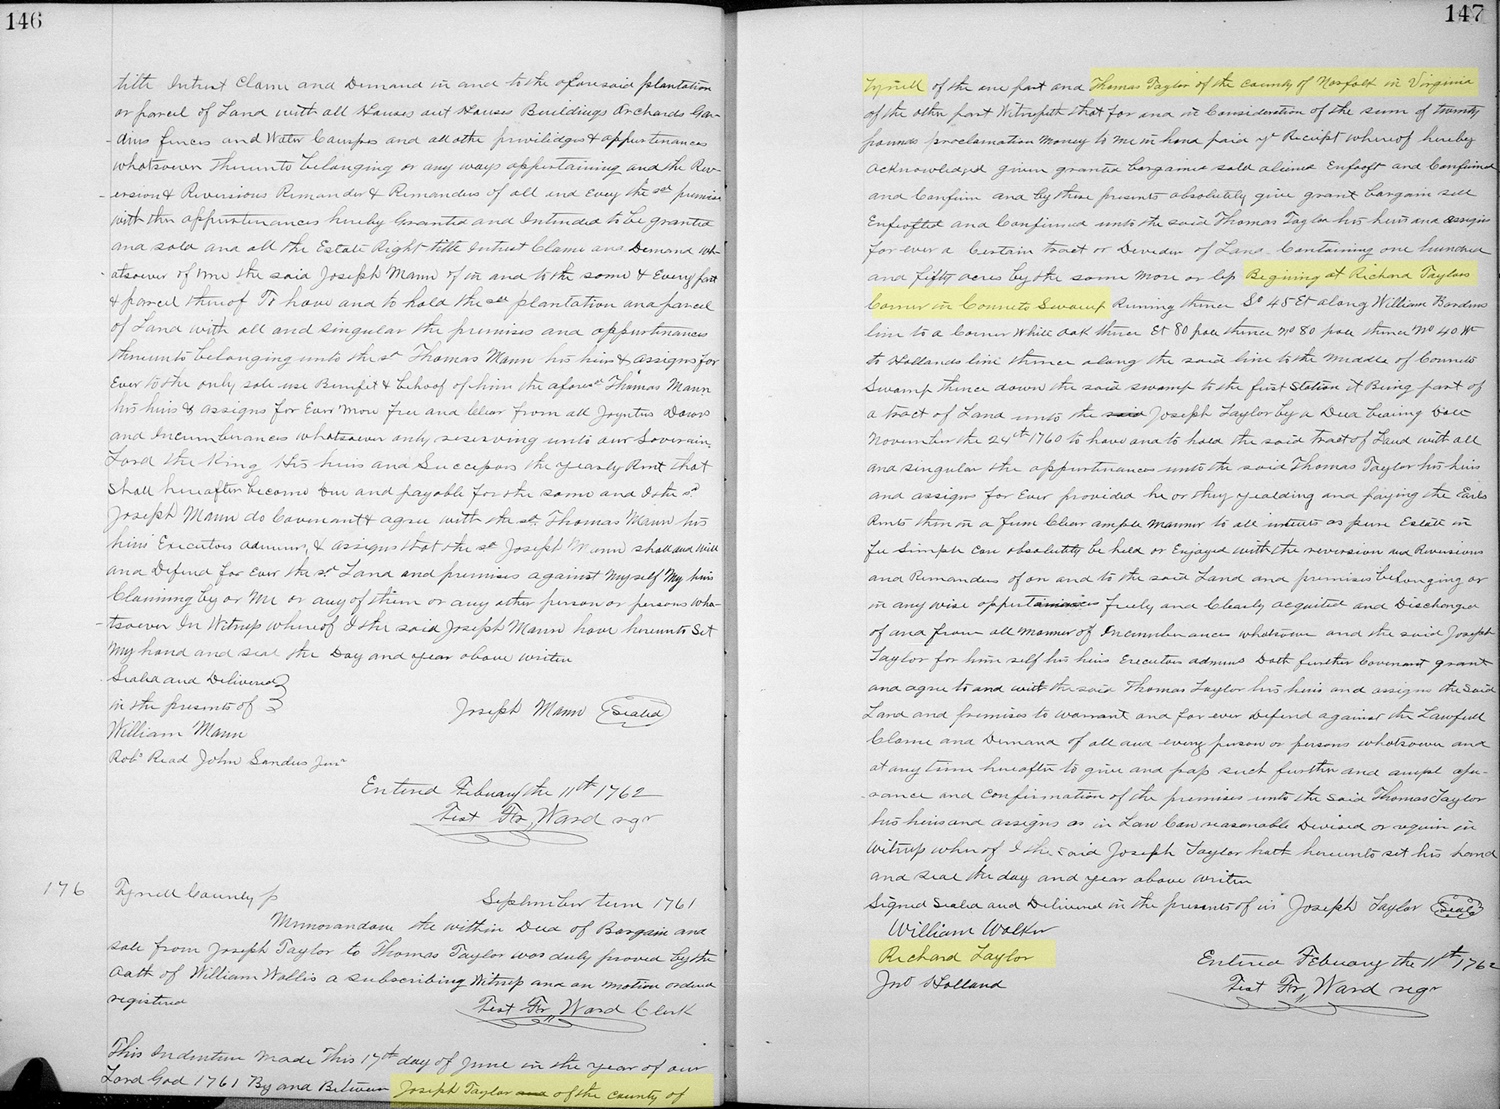 146
title Intrest Claime and Demand in and to the aforesaid plantation
or parcel of Land with all Houses out Houses Buildings Orchards Gar-
dins fences and Water Courses and all othe priviledges & appurtenances
whatsoever thereunto belonging or any ways appertaining and the Rev-
ersion & Reversions Remander & Remanders of all and Evey the sd premises
with ther appurtenances hereby Granted and Intended to be granted
and sold and all the Estate Right title Intrest Claime and Demand wh-
atsoever of me the said Joseph Mann of in and to the same & Every part
& parcel thereof To have and to hold the sd plantation and parcel
of Land with all and singular the premises and appurtinances
thereunto belonging unto the sd Thomas Mann his heirs & assigns for
Ever to the only sole use Benifit & behoof of him the aforesd Thomas Mann
his heirs & assigns for Ever More free and Clear from all Joyntus Dowrs
and Incumberances whatsoever only reserving unto our Soverain
Lord the King His heirs and Successors the yearly Rent that
Shall hereafter become due and payable for the same and I the sd
Joseph Mann do Covenant & agree with the sd Thomas Mann his
heirs Executors admrs & assigns that the sd Joseph Mann shall and will
and Defend for Ever the sd Land and premises against My self My heirs
Claiming by or Me or any of them or any other person or persons wha-
tsoever In Witness whereof I the said Joseph Mann have hereunto Set
My hand and seal the Day and year above writen
Sealed and Delivered
in the presents of
Joseph Mann (Sealed)
William Mann
Robt Read John Sandus Junr
Entered Febuary the 11th 1762
Test Fr, Ward regr
176
Tyrrell County ss
September term 1761
Memorandum the within Deed of Bargain and
sale from Joseph Taylor to Thomas Taylor was duly proved by the
Oath of William Wallis a subscribing Witness and on motion ordered
registered
Test Fr, Ward Clerk
This Indenture Made This 17th day of June in the year of our
Lord God 1761 By and Between Joseph Taylor and of the county of
147
Tyrrell of the one part and Thomas Taylor of the county of Norfolk in Virginia
of the other part Witnesseth that for and in Consideration of the sum of twenty
pounds proclamation Money to me in hand paid ye Receipt whereof hereby
acknowledged given granted bargained sold aliened Enfeoft and Confirmed
and Confirm and by these presents absolutely give grant bargain sell
Enfeofted and Confirmed unto the said Thomas Taylor his heirs and assigns
for ever a Certain tract or Divider of Land Containing one hundred
and fifty acres by the same More or less Begining at Richard Taylors
Corner in Conneto Swamp Runing thence So 45 Et along William Bardens
line to a Corner White oak thence Et 80 pole thence No 80 pole thence No 40 Wt
to Hollands line thence along the said line to the Middle of Conneto
Swamp thence down the said swamp to the first Station it Being part of
a tract of Land unto the said Joseph Taylor by a Deed bearing Date
November the 24th 1760 to have and to hold the said tract of Land with all
and singular the appurtinances unto the said Thomas Taylor his heirs
and assigns for Ever provided he or they yealding and paying the Earls
Rents then in a firm Clear ample manner to all intents as pure Estate in
fee Simple can absolutely be held or Enjoyed with the reversion and Reversions
and Remanders of on and to the said Land and premises belonging or
in any wise appertaining freely and Clearly acquited and Discharged
of and from all manner of Incumberances whatsoever and the said Joseph
Taylor for him self his heirs Executors admins Doth further Covenant grant
and agree to and with the said Thomas Taylor his heirs and assigns the said
Land and premises to warrant and for ever Defend against the Lawfull
Claime and Demand of all and every person or persons whatsoever and
at any time hereafter to give and pass such further and ampel assu-
rance and confirmation of the premises unto the said Thomas Taylor
his heirs and assigns as in Law Can reasonable Devised or requir in
Witness wher of I the said Joseph Taylor hath hereunto set his hand
and seal the day and year above writen
Signed Sealed and Delivered in the presents of us Joseph Taylor (Seal)
William Walker
Richard Taylor
Jno Holland
Entered February the 11th 1762
Test Fr, Ward regr